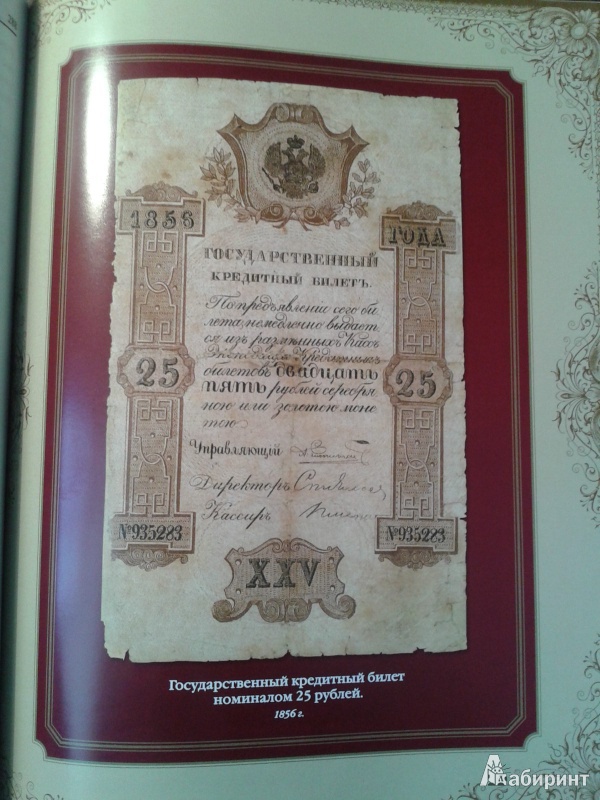 1856 ГОДА
ГОСУДАРСТВЕННЫЙ
КРЕДИТНЫЙ БИЛЕТЪ.
По предъявленіи сего би
лета, немедленно выдает
ся изъ размѣнныхъ кассъ
Экспедиціи Кредитныхъ
билетовъ ДВАДЦАТЬ
ПЯТЬ рублей серебря
ною или золотою моне
тою
25 25
Управляющій
Директоръ
Кассиръ
№935283 №935283
XXV
Государственный кредитный билет
номиналом 25 рублей.
1856 г.
Лабиринт